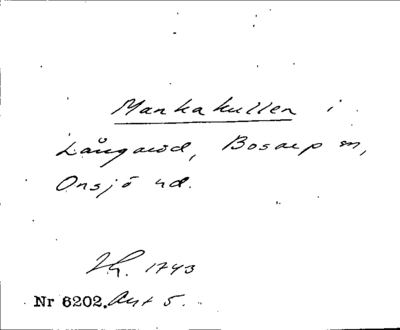 Mankakullen i
Långaröd, Bosarp sn,
Onsjö hd.
Th. 1743
Nr 6202. Avt 5.